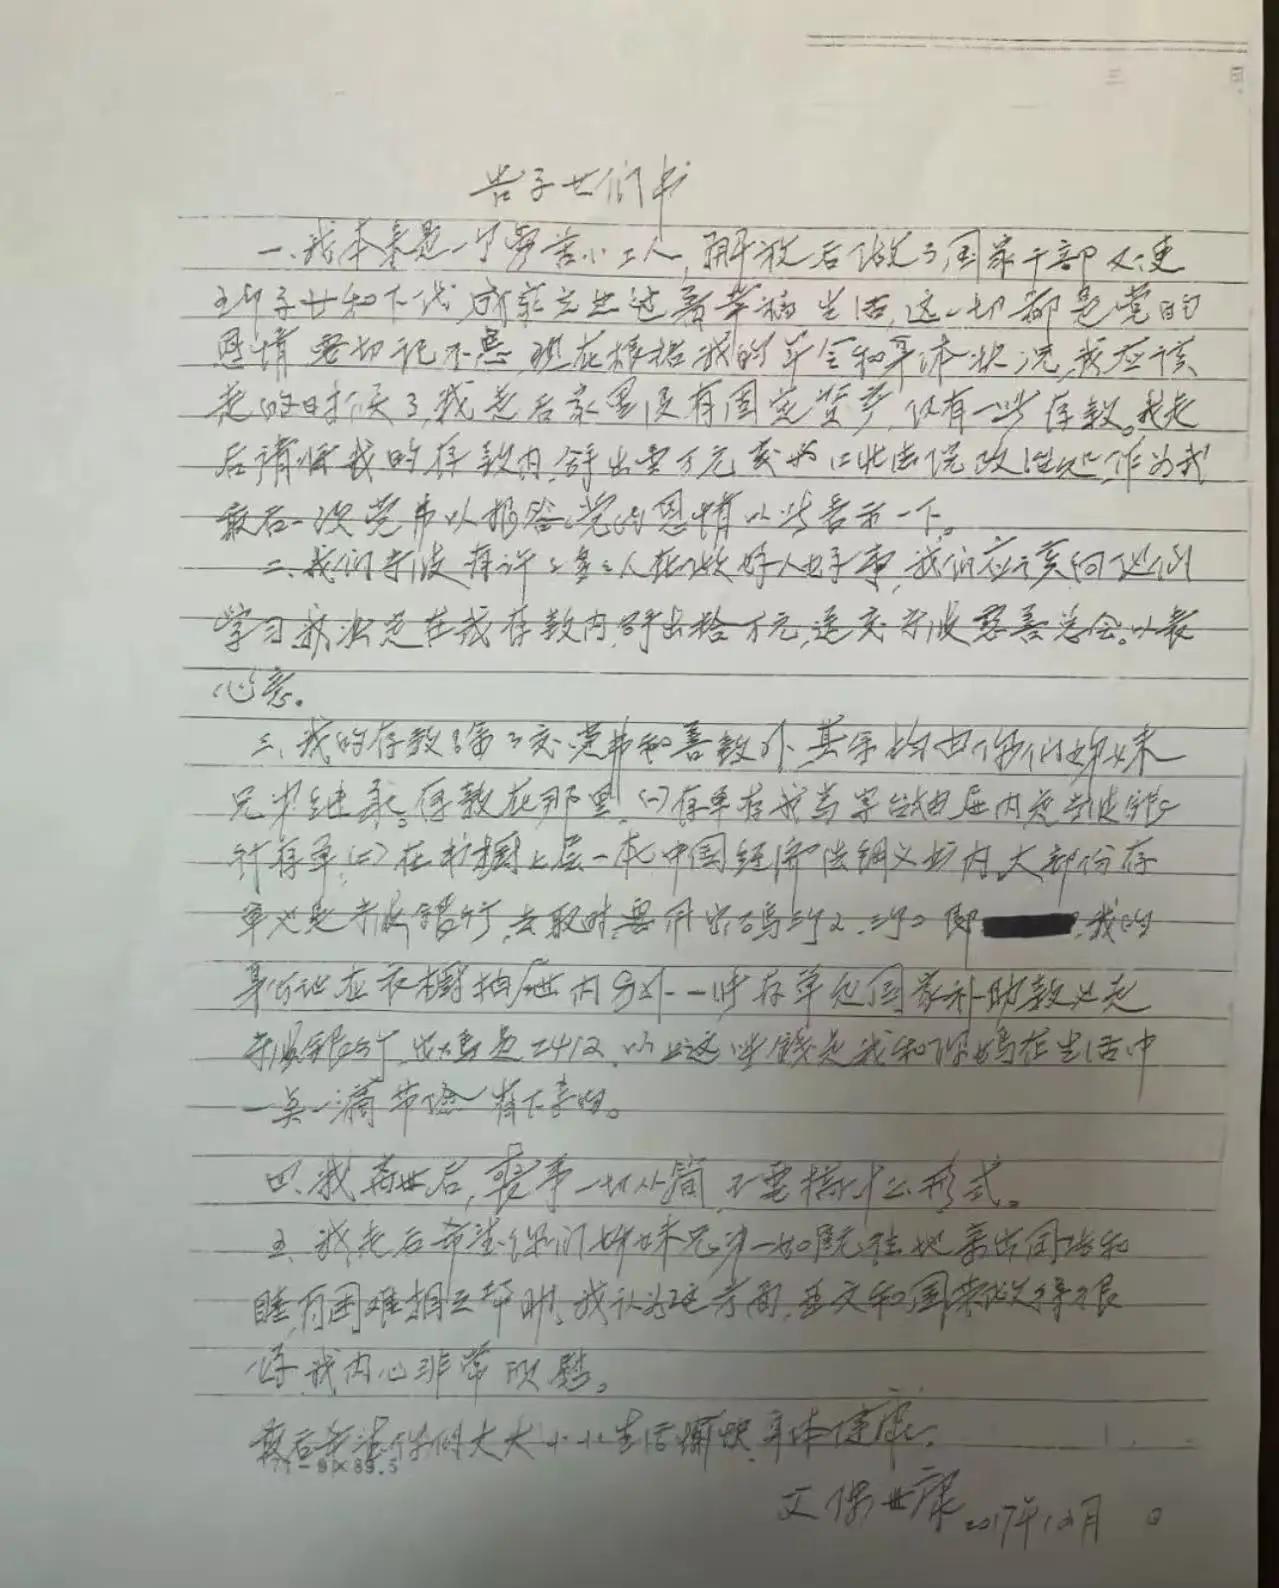 告子女们书
一、我本来是一个劳苦小工人，解放后做了国家干部又使
子女和下代成家立业过着幸福生活，这一切都是党的
恩情要切记不忘，现在根据我的年令和身体状况，我应该
走的时候了，我走后家里没有固定资产，仅有一些存款。我走
后请你我的存款内，拿出壹万元交给江北法院政治处，作为我
最后一次党费以报答党的恩情以些表示一下。
二、我们宁波有许许多多人在做好人好事，我们应该向他们
学习，我决定在我存款内拿出拾万元，送交宁波慈善总会。以表
心意。
三、我的存款除了交党费和善款外，其余均由你们姊妹
兄弟继承。存款在那里，(一)存单在我写字台抽屉内是宁波银行
存单，(二)在书橱上层一本中国经济法纲义书内，大部份存
单必是宁波银行，去取时要用密码 即 我的
身份证在衣橱抽屉内，另外一些存单包国家补助款必是
宁波银行，密码是2412，以上这些钱是我和你妈在生活中
一点一滴节俭省下来的。
四、我离世后，丧事一切从简，不要搞什么形式。
五、我走后希望你们姊妹兄弟一如既往地亲密团结和
睦，有困难相互帮助，我认为 和国 做得很
好，我内心非常欣慰。
最后希望你们大大小小生活愉快，身体健康。
71-9×89.5
父 康 2017年10月 日